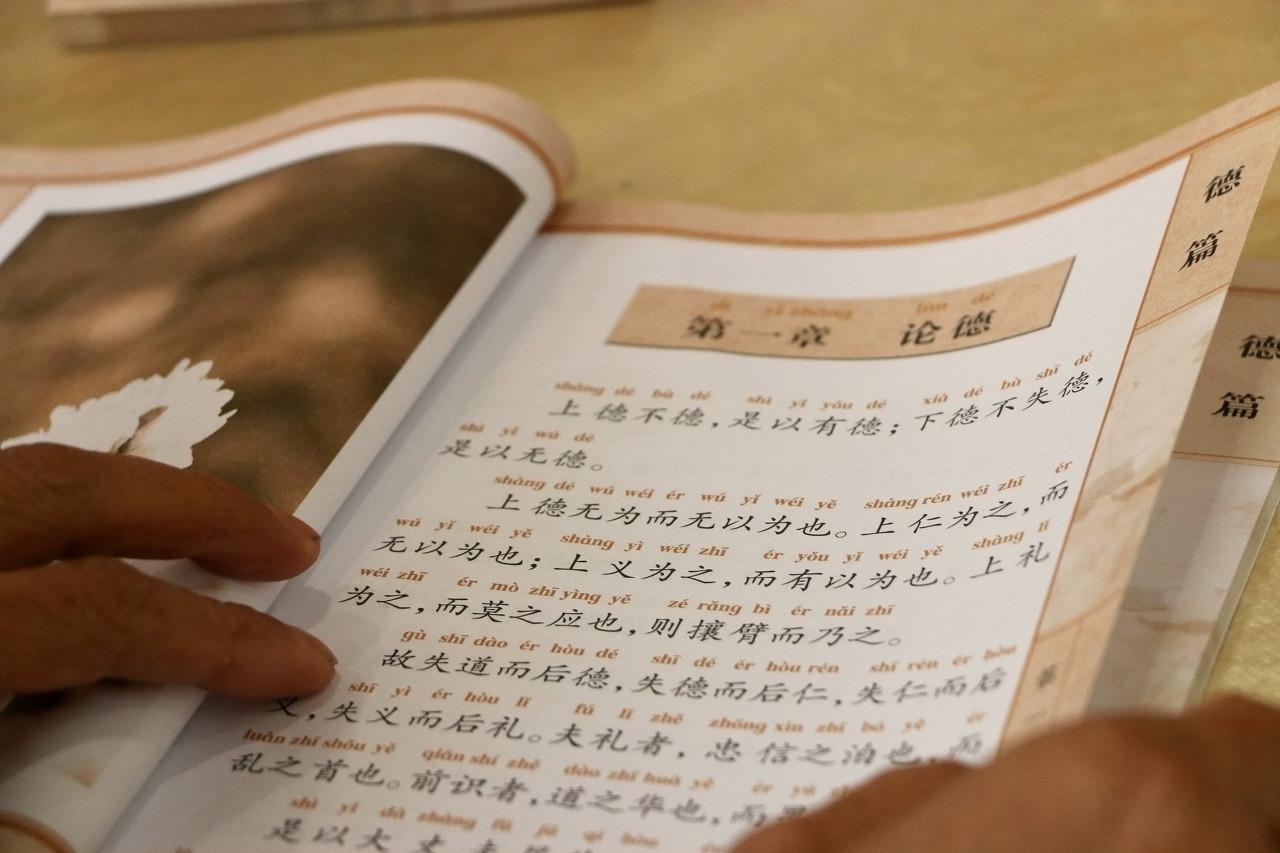 dì yī zhāng lùn dé
第一章 论德
shàng dé bù dé shì yǐ yǒu dé xià dé bù shī dé
上德不德，是以有德；下德不失德，
shì yǐ wú dé
是以无德。
shàng dé wú wéi ér wú yǐ wéi yě shàng rén wéi zhī ér
上德无为而无以为也。上仁为之，而
wú yǐ wéi yě shàng yì wéi zhī ér yǒu yǐ wéi yě shàng lǐ
无以为也；上义为之，而有以为也。上礼
wéi zhī ér mò zhī yìng yě zé rǎng bì ér nǎi zhī
为之，而莫之应也，则攘臂而乃之。
gù shī dào ér hòu dé shī dé ér hòu rén shī rén ér hòu
故失道而后德，失德而后仁，失仁而后
shī yì ér hòu lǐ fú lǐ zhě zhōng xìn zhī bó yě ér
义，失义而后礼。夫礼者，忠信之泊也，而
luàn zhī shǒu yě qián shí zhě dào zhī huá yě ér yú
乱之首也。前识者，道之华也，而
shì yǐ dà zhàng fū jū qí hòu
是以大丈夫居
德篇
德篇
第一